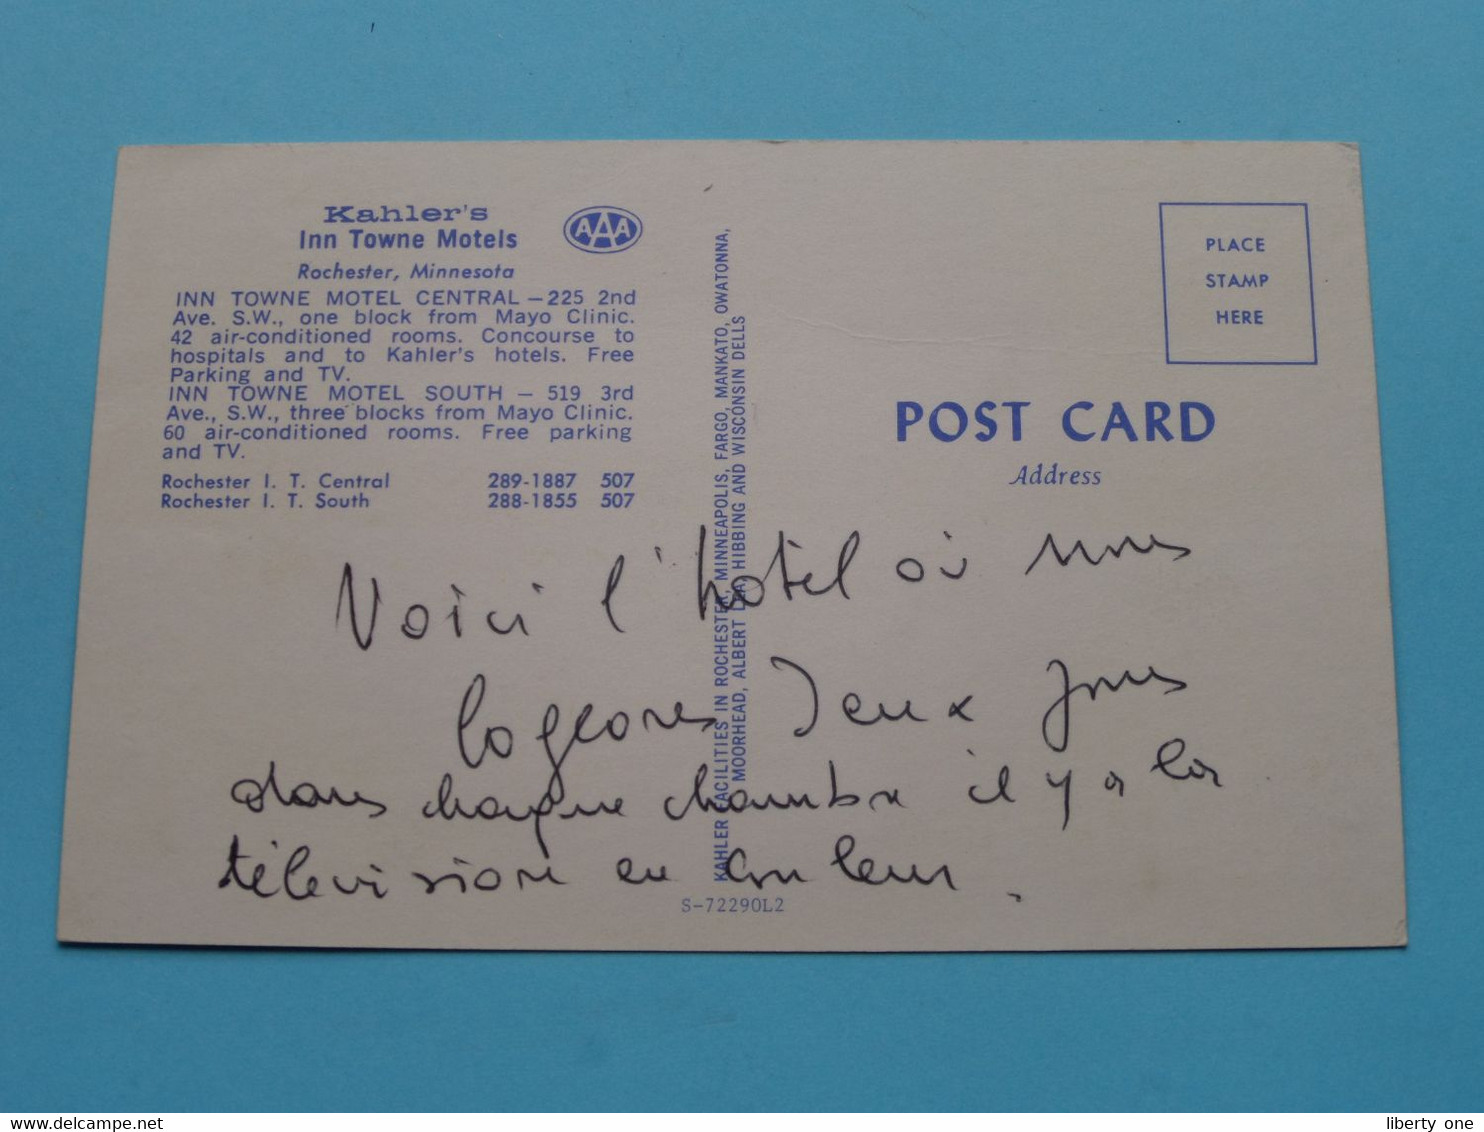 Kahler's
Inn Towne Motels
AAA
Rochester, Minnesota
INN TOWNE MOTEL CENTRAL – 225 2nd
Ave. S.W., one block from Mayo Clinic.
42 air-conditioned rooms. Concourse to
hospitals and to Kahler's hotels. Free
Parking and TV.
INN TOWNE MOTEL SOUTH – 519 3rd
Ave., S.W., three blocks from Mayo Clinic.
60 air-conditioned rooms. Free parking
and TV.
Rochester I. T. Central 289-1887 507
Rochester I. T. South 288-1855 507
KAHLER FACILITIES IN ROCHESTER, MINNEAPOLIS, FARGO, MANKATO, OWATONNA,
MOORHEAD, ALBERT LEA, HIBBING AND WISCONSIN DELLS
PLACE
STAMP
HERE
POST CARD
Address
Voici l'hotel où nous
logeons deux jours
dans chaque chambre il y a la
télévision en couleur.
S-72290L2
www.delcampe.net
liberty one